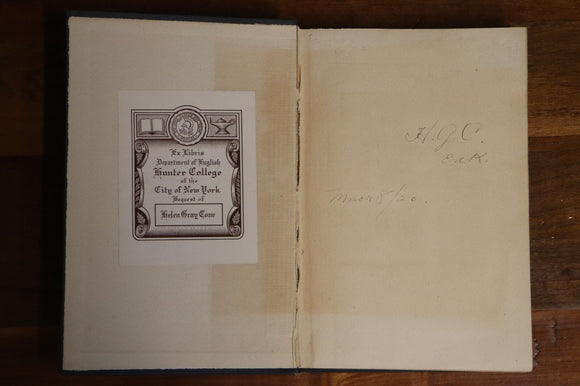 Ex Libris
Department of English
Hunter College
of the
City of New York
Bequest of
Helen Gray Cone
H.G.C.